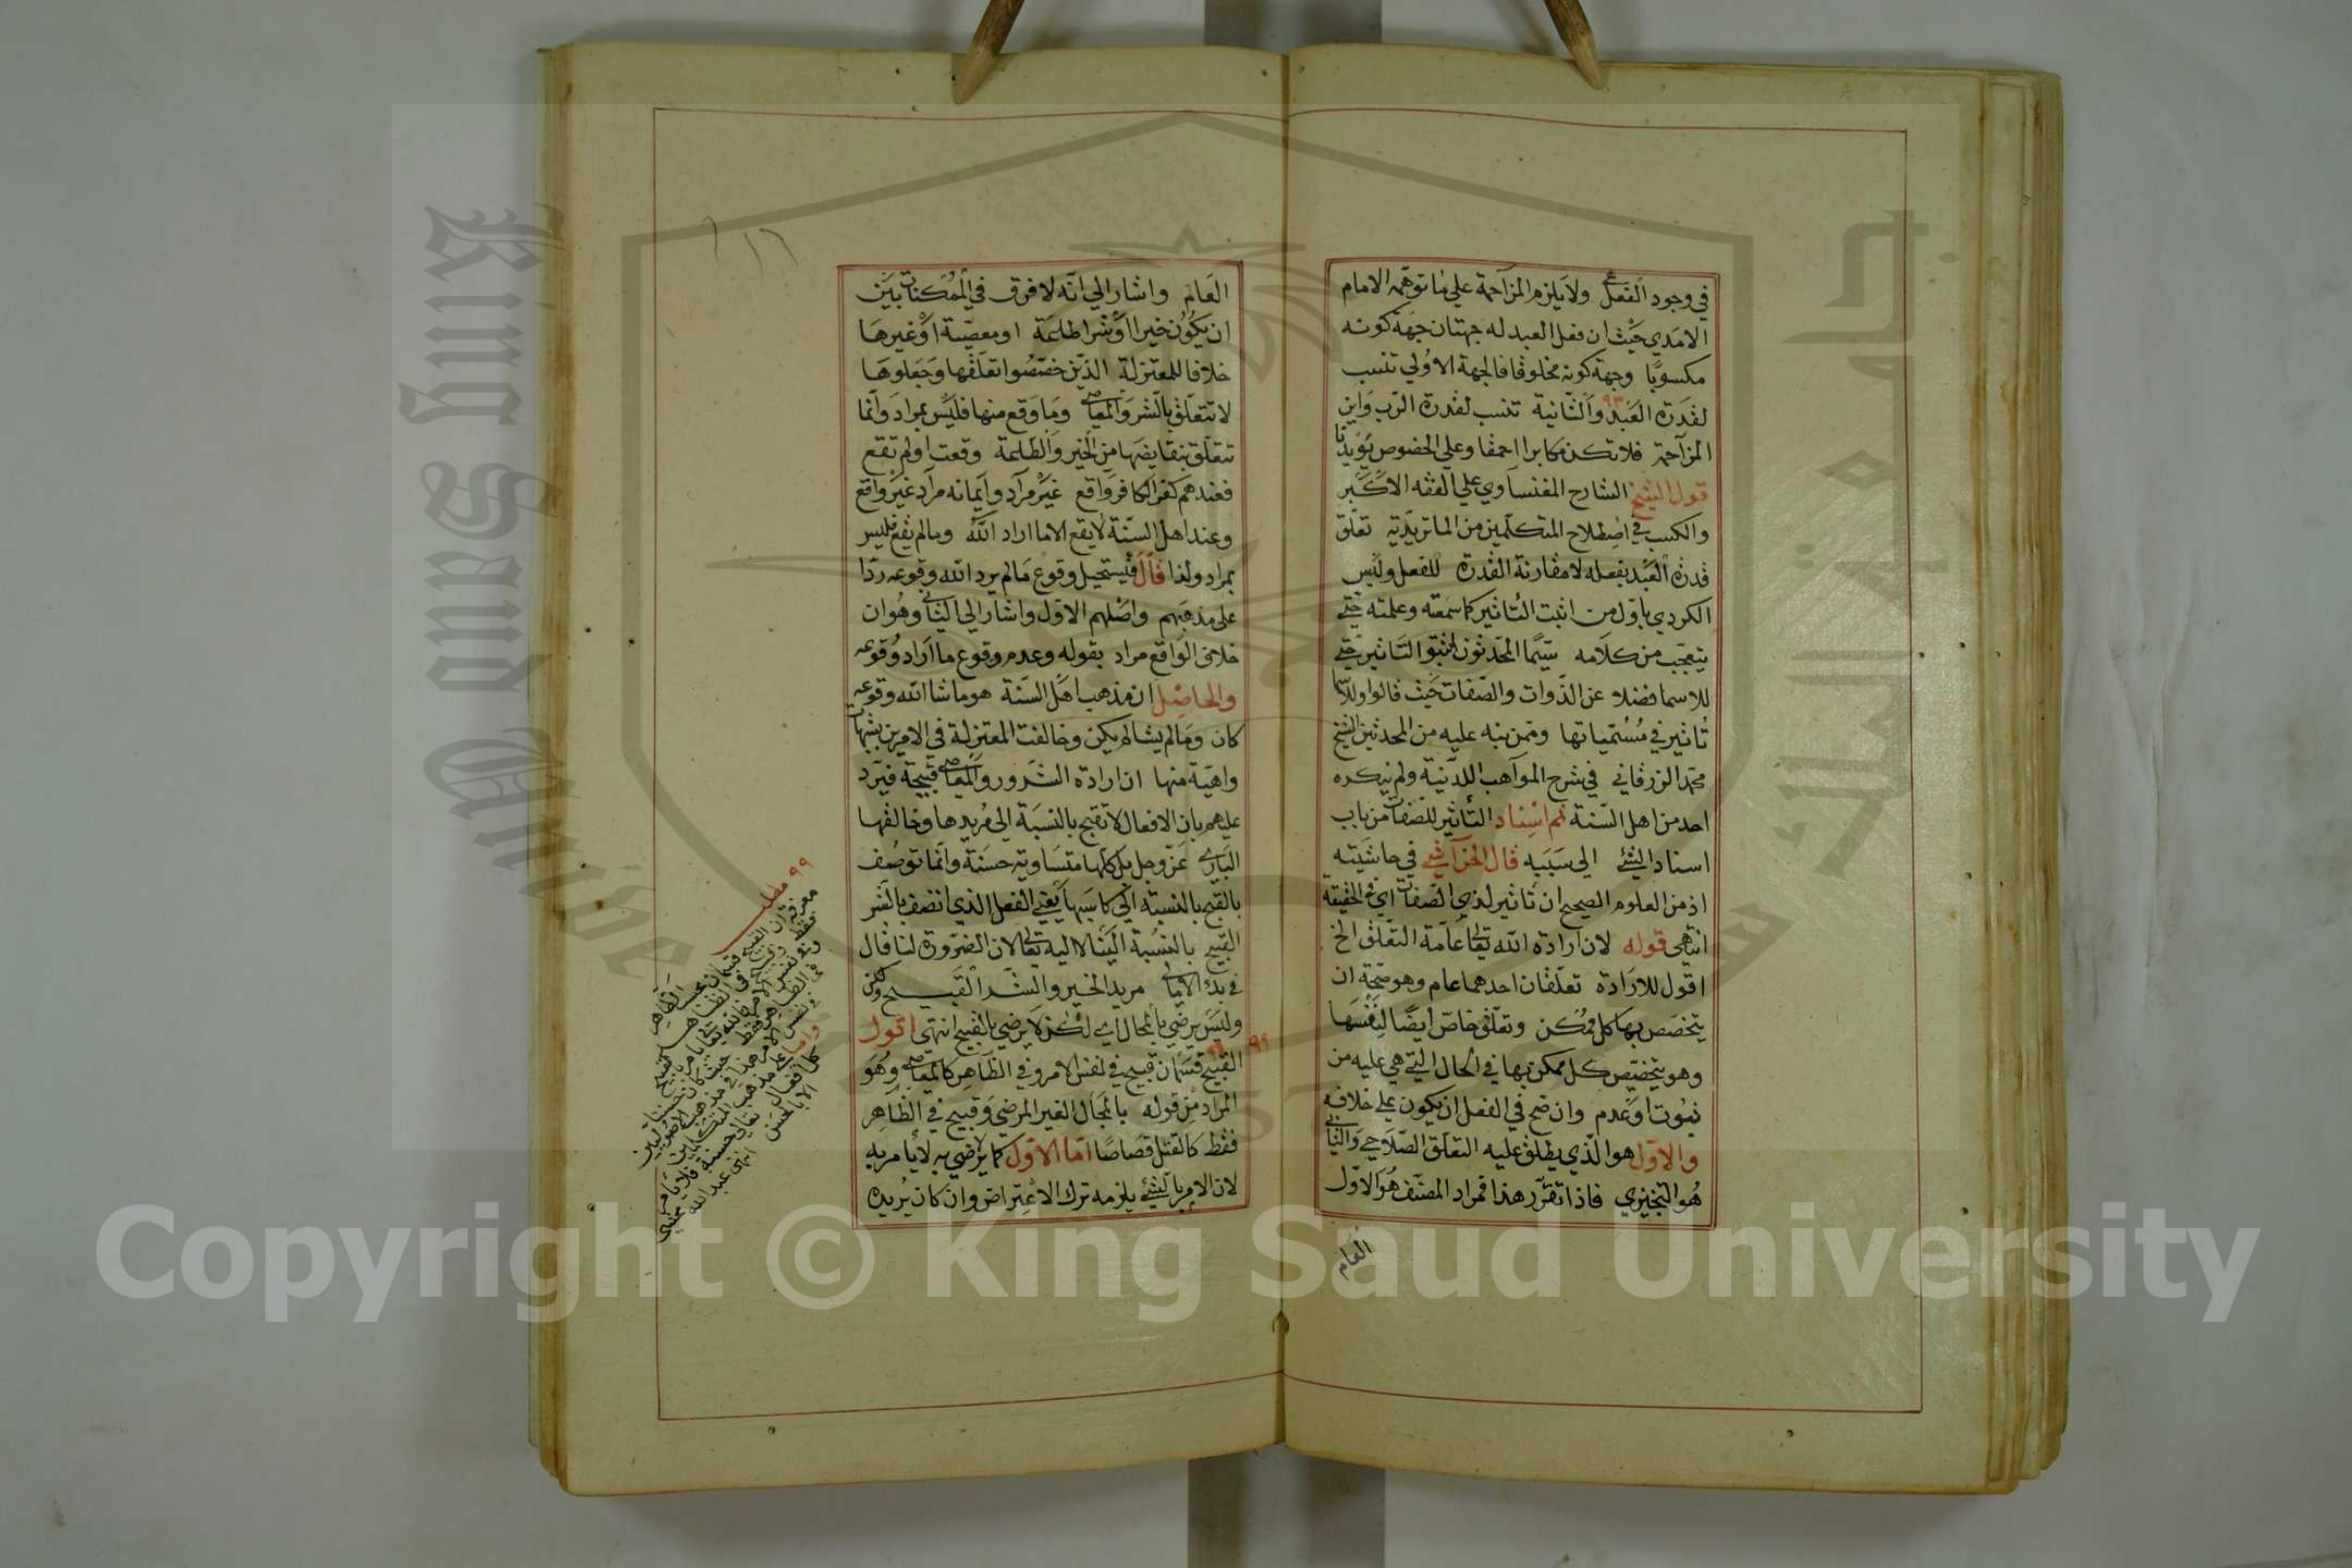 في وجود الفعل ولا يلزم المزاحمة علي ما توهمه الامام
الامدي حيث ان فعل العبد له جهتان جهة كونه
مكسوبا وجهة كونه مخلوقا فالجهة الاولي تنسب
لقدرة العبد والثانية تنسب لقدرة الرب واين
المزاحمة فلا تكن مكابرا احمقا وعلي الخصوص يؤيدنا
قول الشيخ الشارح المغنساوي علي الفقه الاكبر
والكسب في اصطلاح المتكلمين من الماتريدية تعلق
قدرة العبد بفعله لا مقارنة القدرة للفعل وليس
الكردي باول من اثبت التاثير كما سمعته وعلمته حتي
يتعجب من كلامه سيما المحدثون اثبتوا التاثير حتي
للاسما فضلا عن الذوات والصفات حيث قالوا وللاسما
تاثير في مسمياتها وممن نبه عليه من المحدثين الشيخ
محمد الزرقاني في شرح المواهب اللدنية ولم ينكره
احد من اهل السنة ثم اسناد التأثير للصفات من باب
اسناد الشئ الي سببه قال الخراشي في حاشيته
اذ من العلوم الصحيح ان تاثير لذي الصفات اي في الحقيقة
انتهي قوله لان ارادة الله تعالي عامة التعلق الخ
اقول للارادة تعلقان احدهما عام وهو صحة ان
يتخصص بها كل ممكن وتعلق خاص ايضا لنفسها
وهو يتخصص كل ممكن بها في الحال التي هي عليه من
ثبوت او عدم وان صح في الفعل ان يكون علي خلافه
والاول هو الذي يطلق عليه التعلق الصلاحي والثاني
هو التنجيزي فاذا تقرر هذا فمراد المصنف هو الاول
العام
العام واشار الي انه لا فرق في الممكنات بين
ان يكون خيرا او شرا طاعة او معصية او غيرها
خلافا للمعتزلة الذين خصصوا تعلقها وجعلوها
لا تتعلق بالشر والمعاصي وما وقع منها فليس بمراد وانما
تتعلق بنقايضها من الخير والطاعة وقعت او لم تقع
فعندهم كفر الكافر واقع غير مراد وايمانه مراد غير واقع
وعند اهل السنة لا يقع الا ما اراد الله وما لم يقع فليس
بمراد ولذا قال فيستحيل وقوع ما لم يرد الله وقوعه ردا
علي مذهبهم واصلهم الاول واشار الي الثاني وهو ان
خلاف الواقع مراد بقوله وعدم وقوع ما اراد وقوعه
والحاصل ان مذهب اهل السنة هو ما شا الله وقوعه
كان وما لم يشا لم يكن وخالفت المعتزلة في الامرين بشبهات
واهية منها ان ارادة الشرور والمعاصي قبيحة فيرد
عليهم بان الافعال لا تقبح بالنسبة الي مريدها وخالقها
الباري عز وجل بل كلها متساوية حسنة وانما توصف
بالقبح بالنسبة الي كاسبها يعني الفعل الذي اتصف بالشر
القبيح بالنسبة الينا لا اليه تعالي لان الضرورة لنا قال
في بدء الامالي مريد الخير والشر القبيح ولكن
وليس يرضي بالمحال اي لكن لا يرضي بالقبيح انتهي اقول
القبيح قسمان قبيح في نفس الامر وفي الظاهر كالمعاصي وهو
المراد من قوله بالمحال الغير المرضي وقبيح في الظاهر
فقط كالقتل قصاصا اما الاول كما لا يرضي به لا يامر به
لان الامر بالشئ يلزمه ترك الاعتراض وان كان يريده
٩٩ مطلب
معرفة ان القبيح قسمان